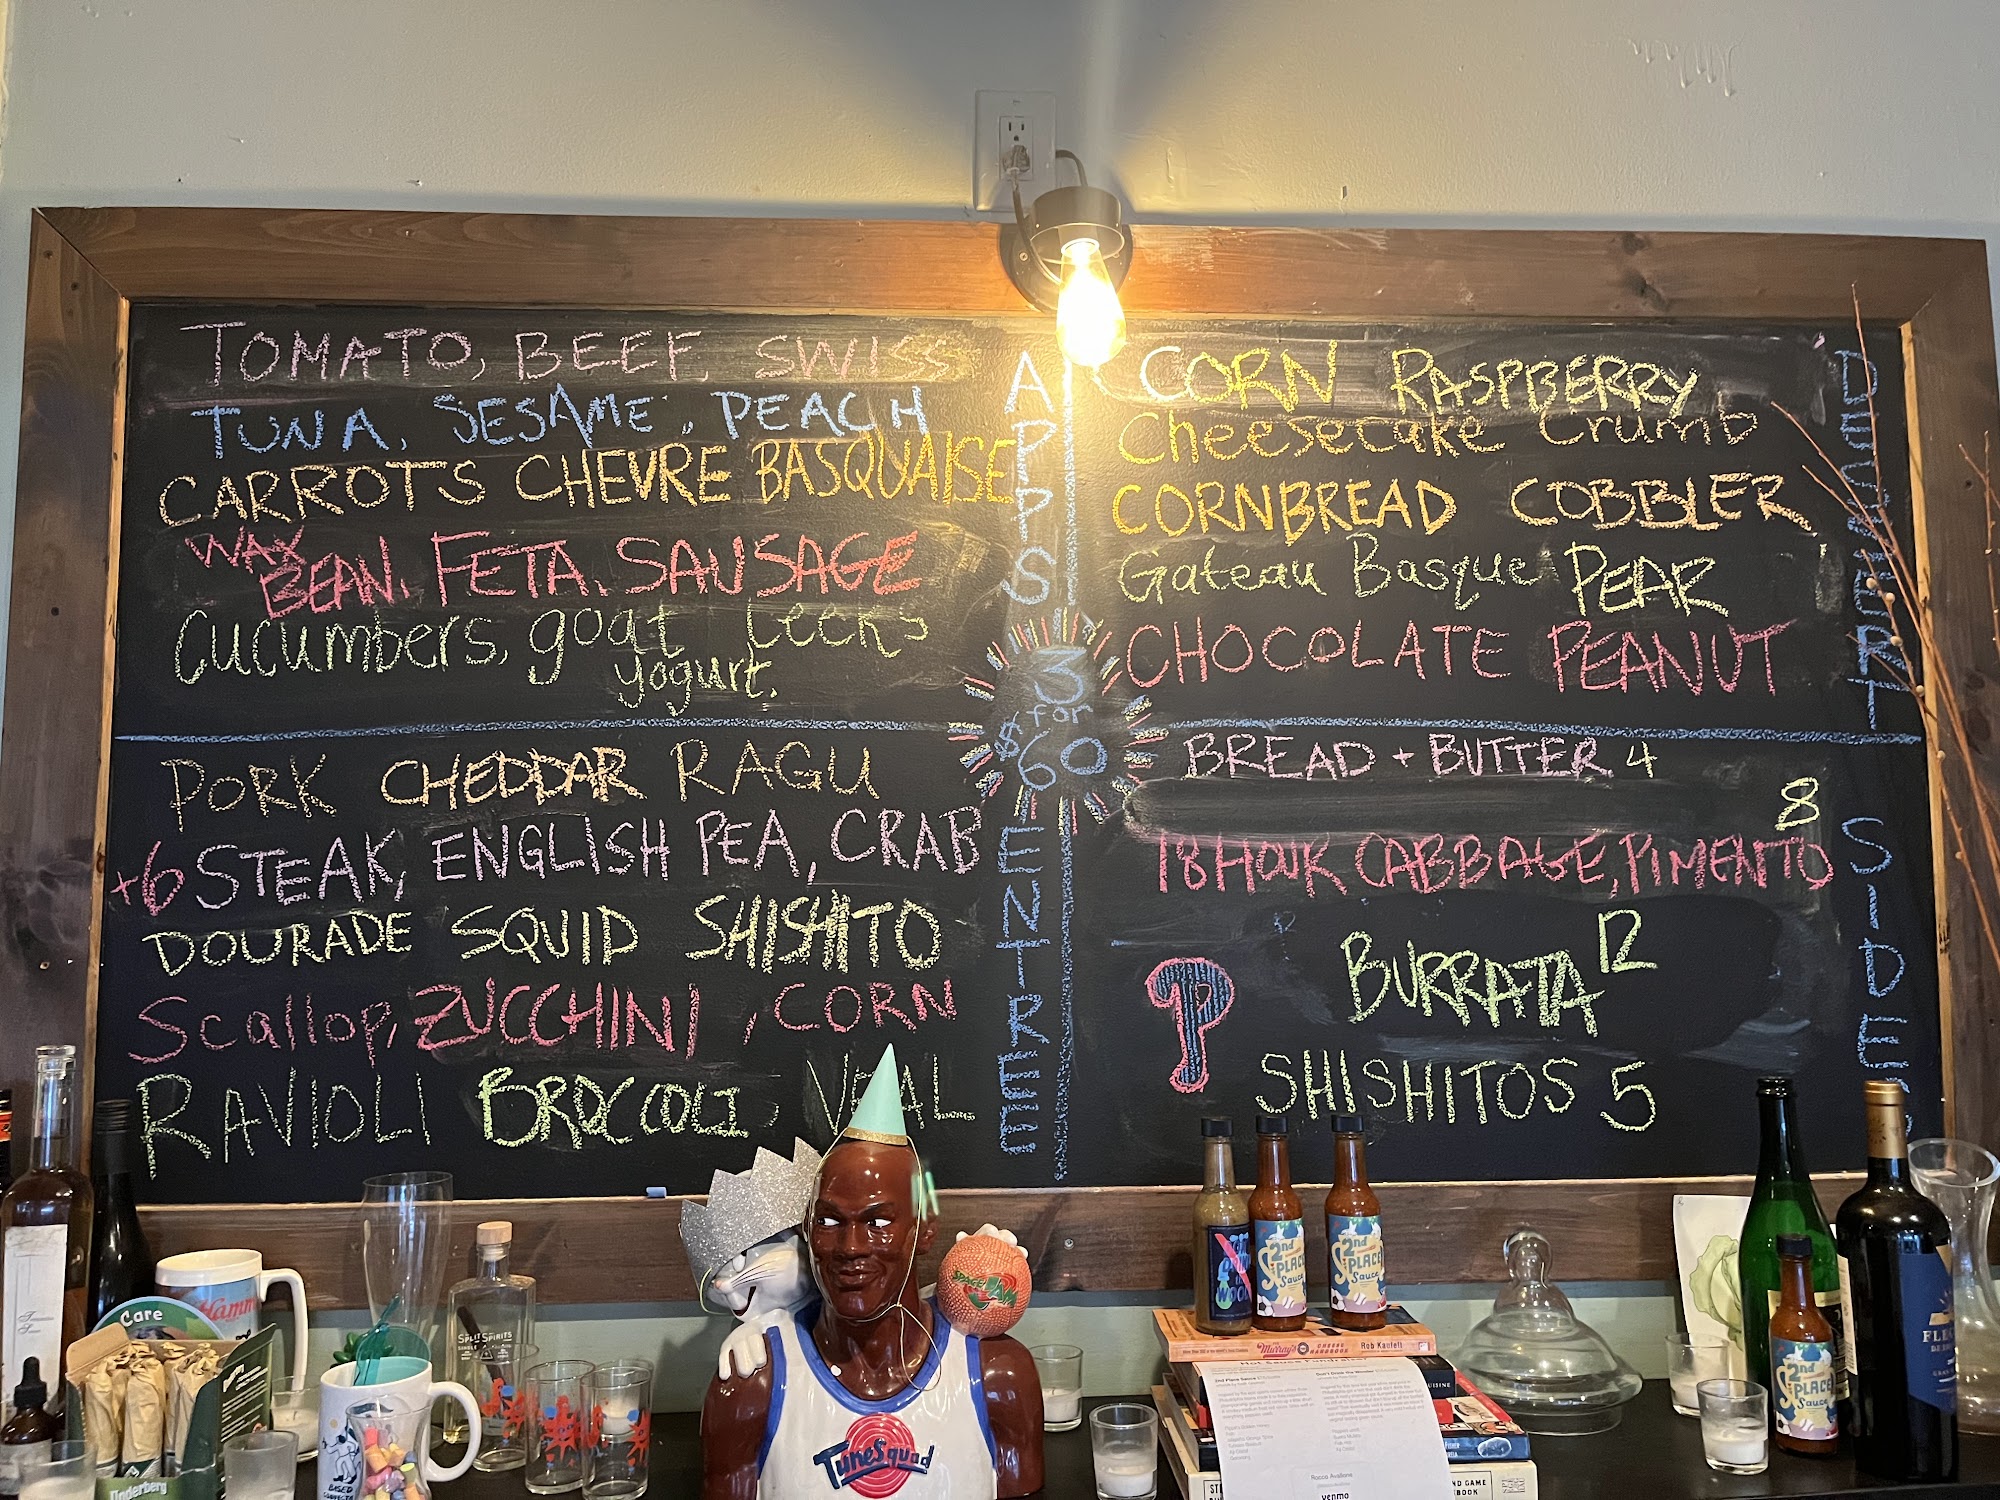 TOMATO, BEEF, SWISS
TUNA, SESAME, PEACH
CARROTS CHEVRE BASQUAISE
WAX
BEAN, FETA, SAUSAGE
Cucumbers, goat Leeks
yogurt.
APPS
CORN RASPBERRY
Cheesecake Crumb
CORNBREAD COBBLER
Gateau Basque PEAR
CHOCOLATE PEANUT
DESSERT
3
for
$60
PORK CHEDDAR RAGU
+6 STEAK, ENGLISH PEA, CRAB
DOURADE SQUID SHISHITO
Scallop, ZUCCHINI, CORN
RAVIOLI BROCCOLI VEAL
ENTREE
BREAD + BUTTER 4
8
18 HOUR CABBAGE, PIMENTO
BURRATA 12
P
SHISHITOS 5
SIDES
Care
Hamm
SPLIT SPIRITS
SPACE JAM
TuneSquad
2nd
PLACE
Sauce
2nd
PLACE
Sauce
2nd
PLACE
Sauce
Murray's CHEESE HANDBOOK Rob Kaufelt
Hot Sauce Fundraiser
Rocco Avallone
venmo
Underberg